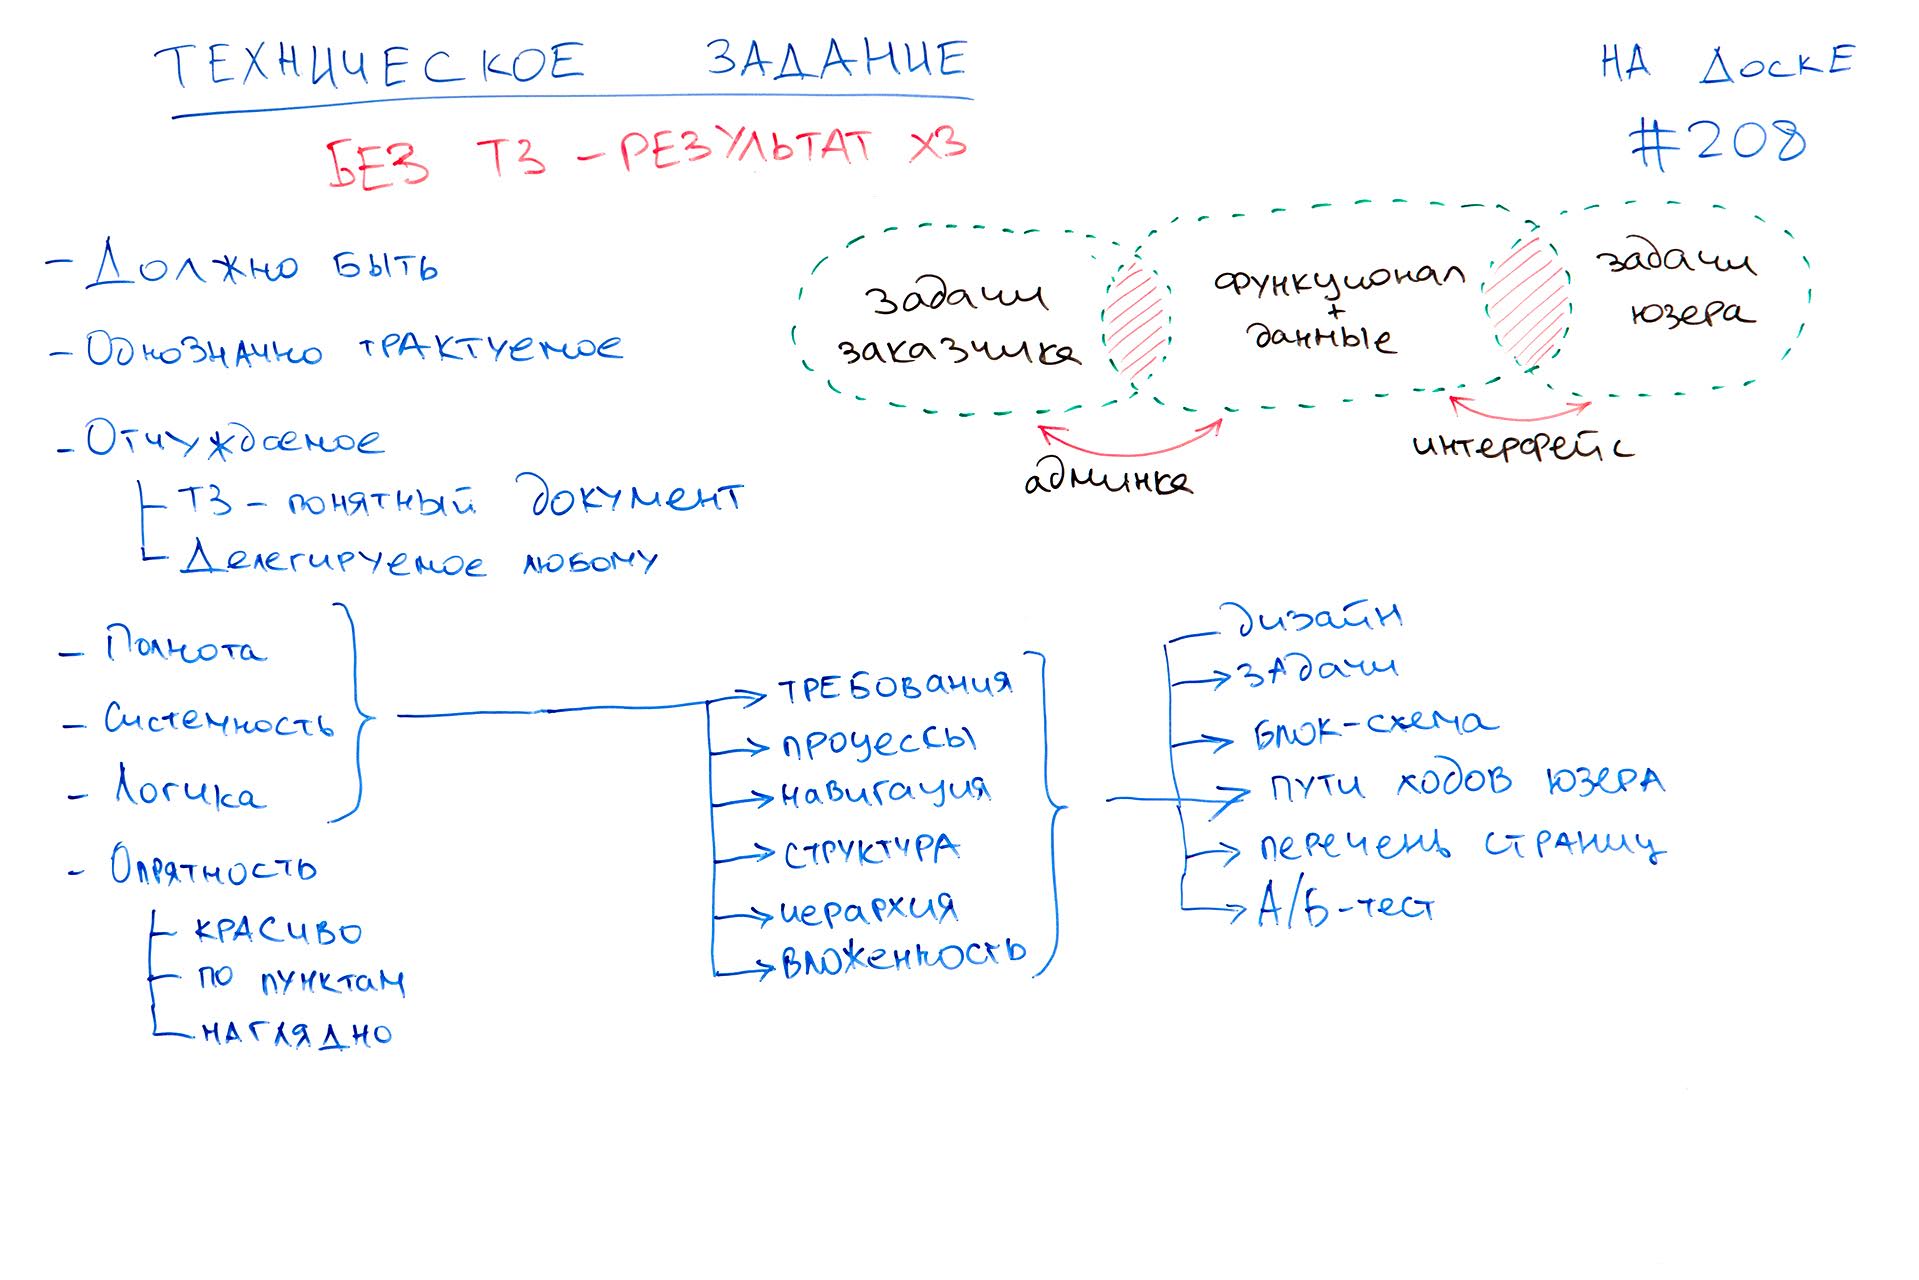 ТЕХНИЧЕСКОЕ ЗАДАНИЕ
НА ДОСКЕ
#208
БЕЗ ТЗ – РЕЗУЛЬТАТ ХЗ
– Должно быть
– Однозначно трактуемое
– Отчуждаемое
ТЗ – понятный документ
Делегируемое любому
– Полнота
– Системность
– Логика
– Опрятность
красиво
по пунктам
наглядно
задачи
заказчика
функционал
+
данные
задачи
юзера
админка
интерфейс
требования
процессы
навигация
структура
иерархия
вложенность
дизайн
задачи
блок-схема
пути ходов юзера
перечень страниц
А/Б-тест